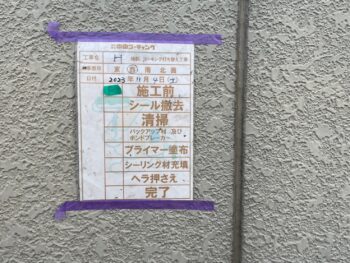 工事名 H
シーキング打ち替え工事
東 西 南 北 面
日付 2023年11月4日(土)
施工前
シール撤去
清掃
バックアップ材 及び
ボンドブレーカー
プライマー塗布
シーリング材充填
ヘラ押さえ
完了